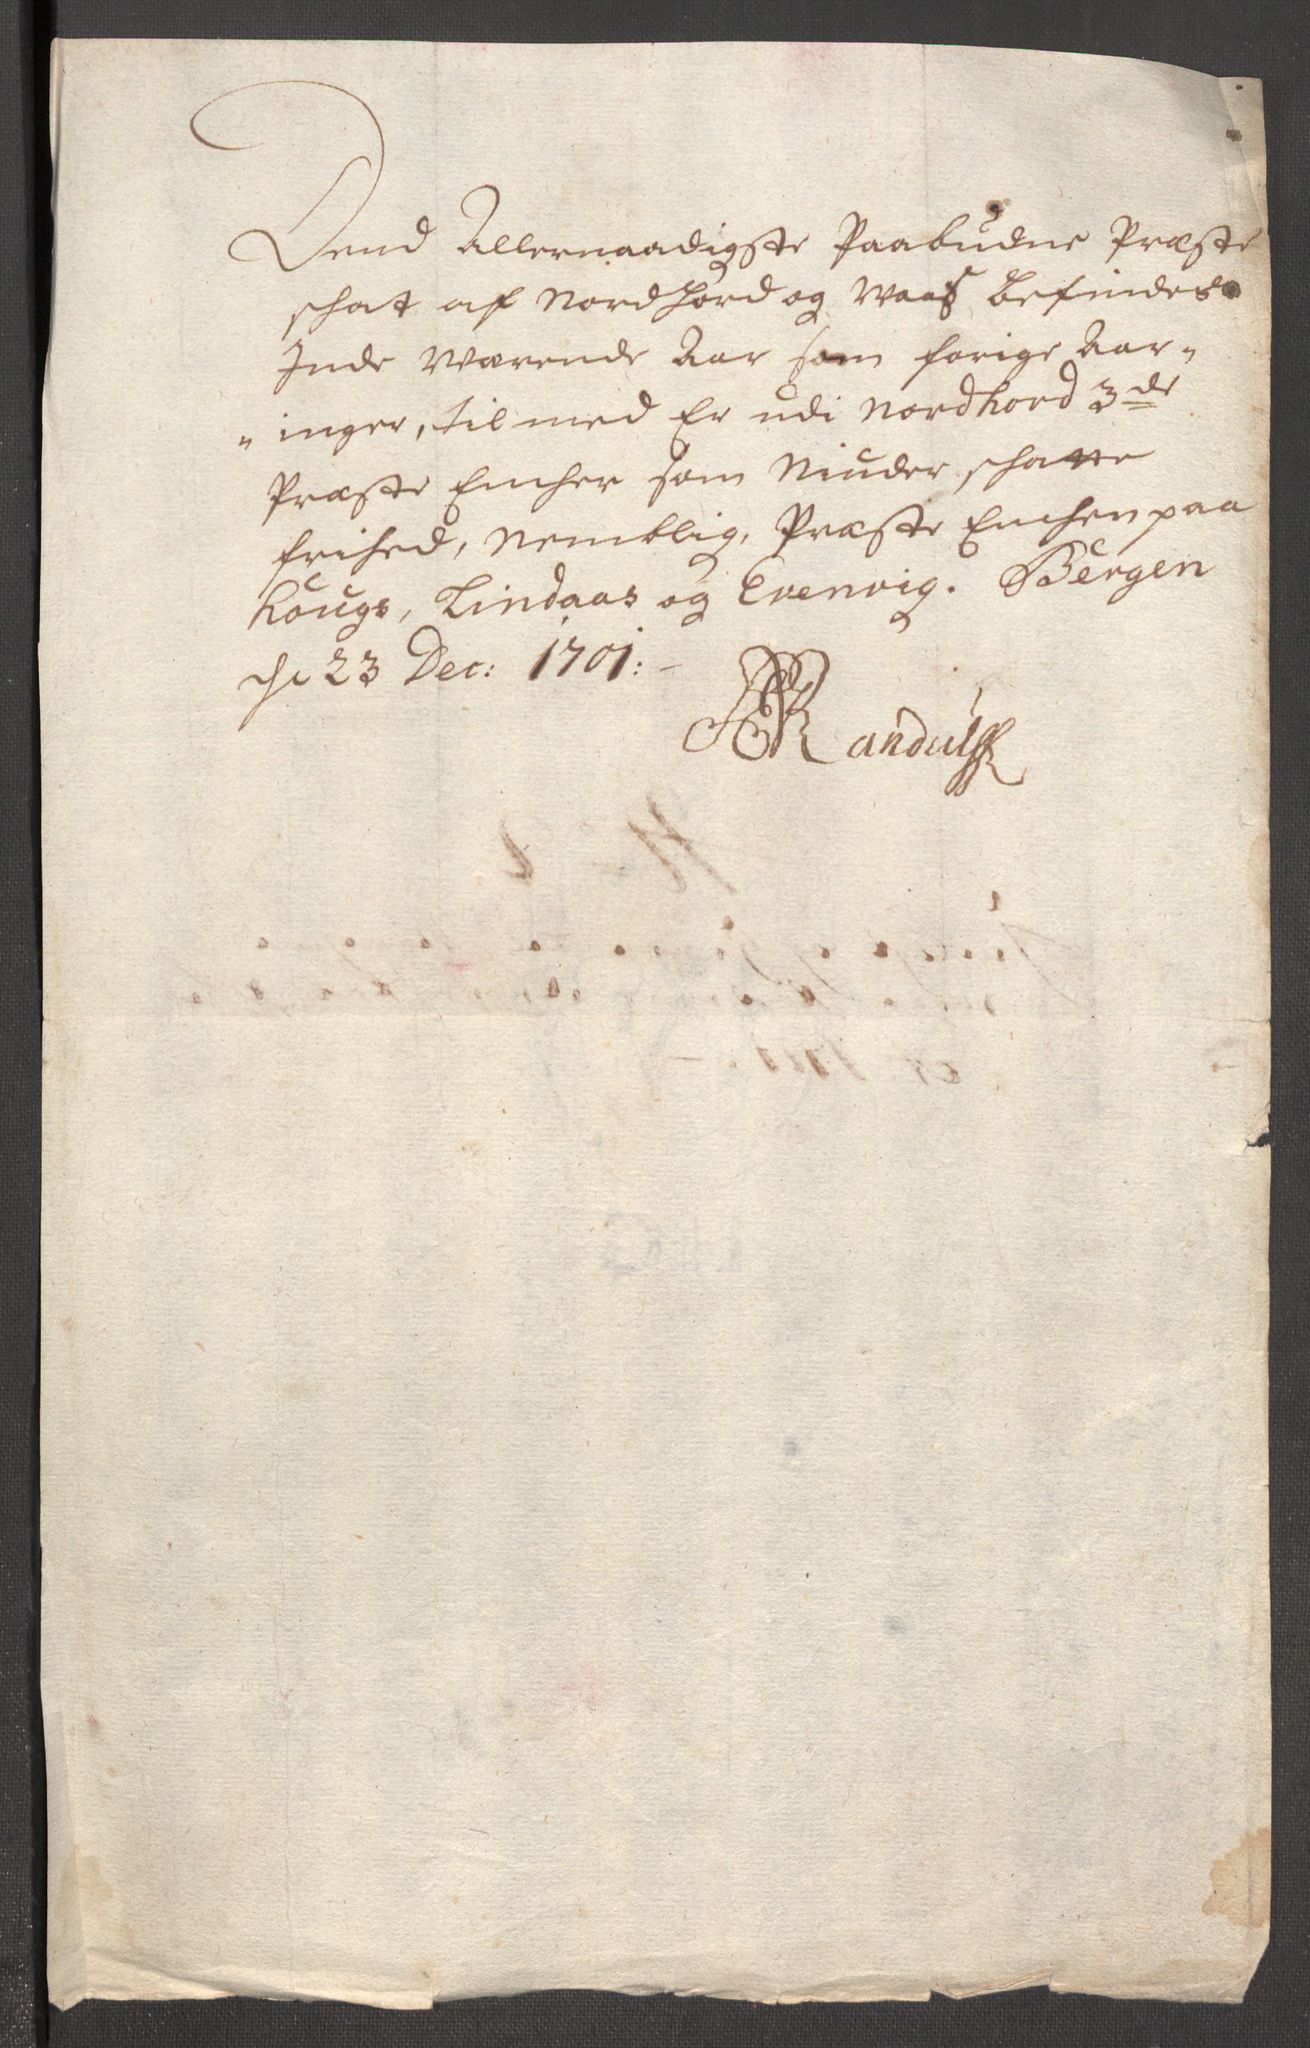 Dend Allernaadigste Paabudne Præste
schat af Nordhord og Waas befindes
Inde Wærende Aar som forige Aar-
inger, til med Er udi Nordhord 3de
Præste Encher som Niuder schatte
frihed, Nemblig, Præste Enchen paa
Hougs, Lindaas og Evenvig. Bergen
de 23 Dec: 1701:
Randulff